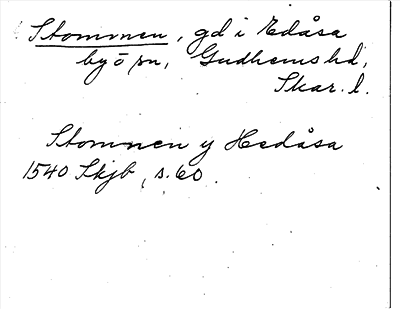 Stommen, gd i Edåsa
by o sn, Gudhems hd,
Skar. l.
Stommen y Hedåsa
1540 Skjb, s. 60.